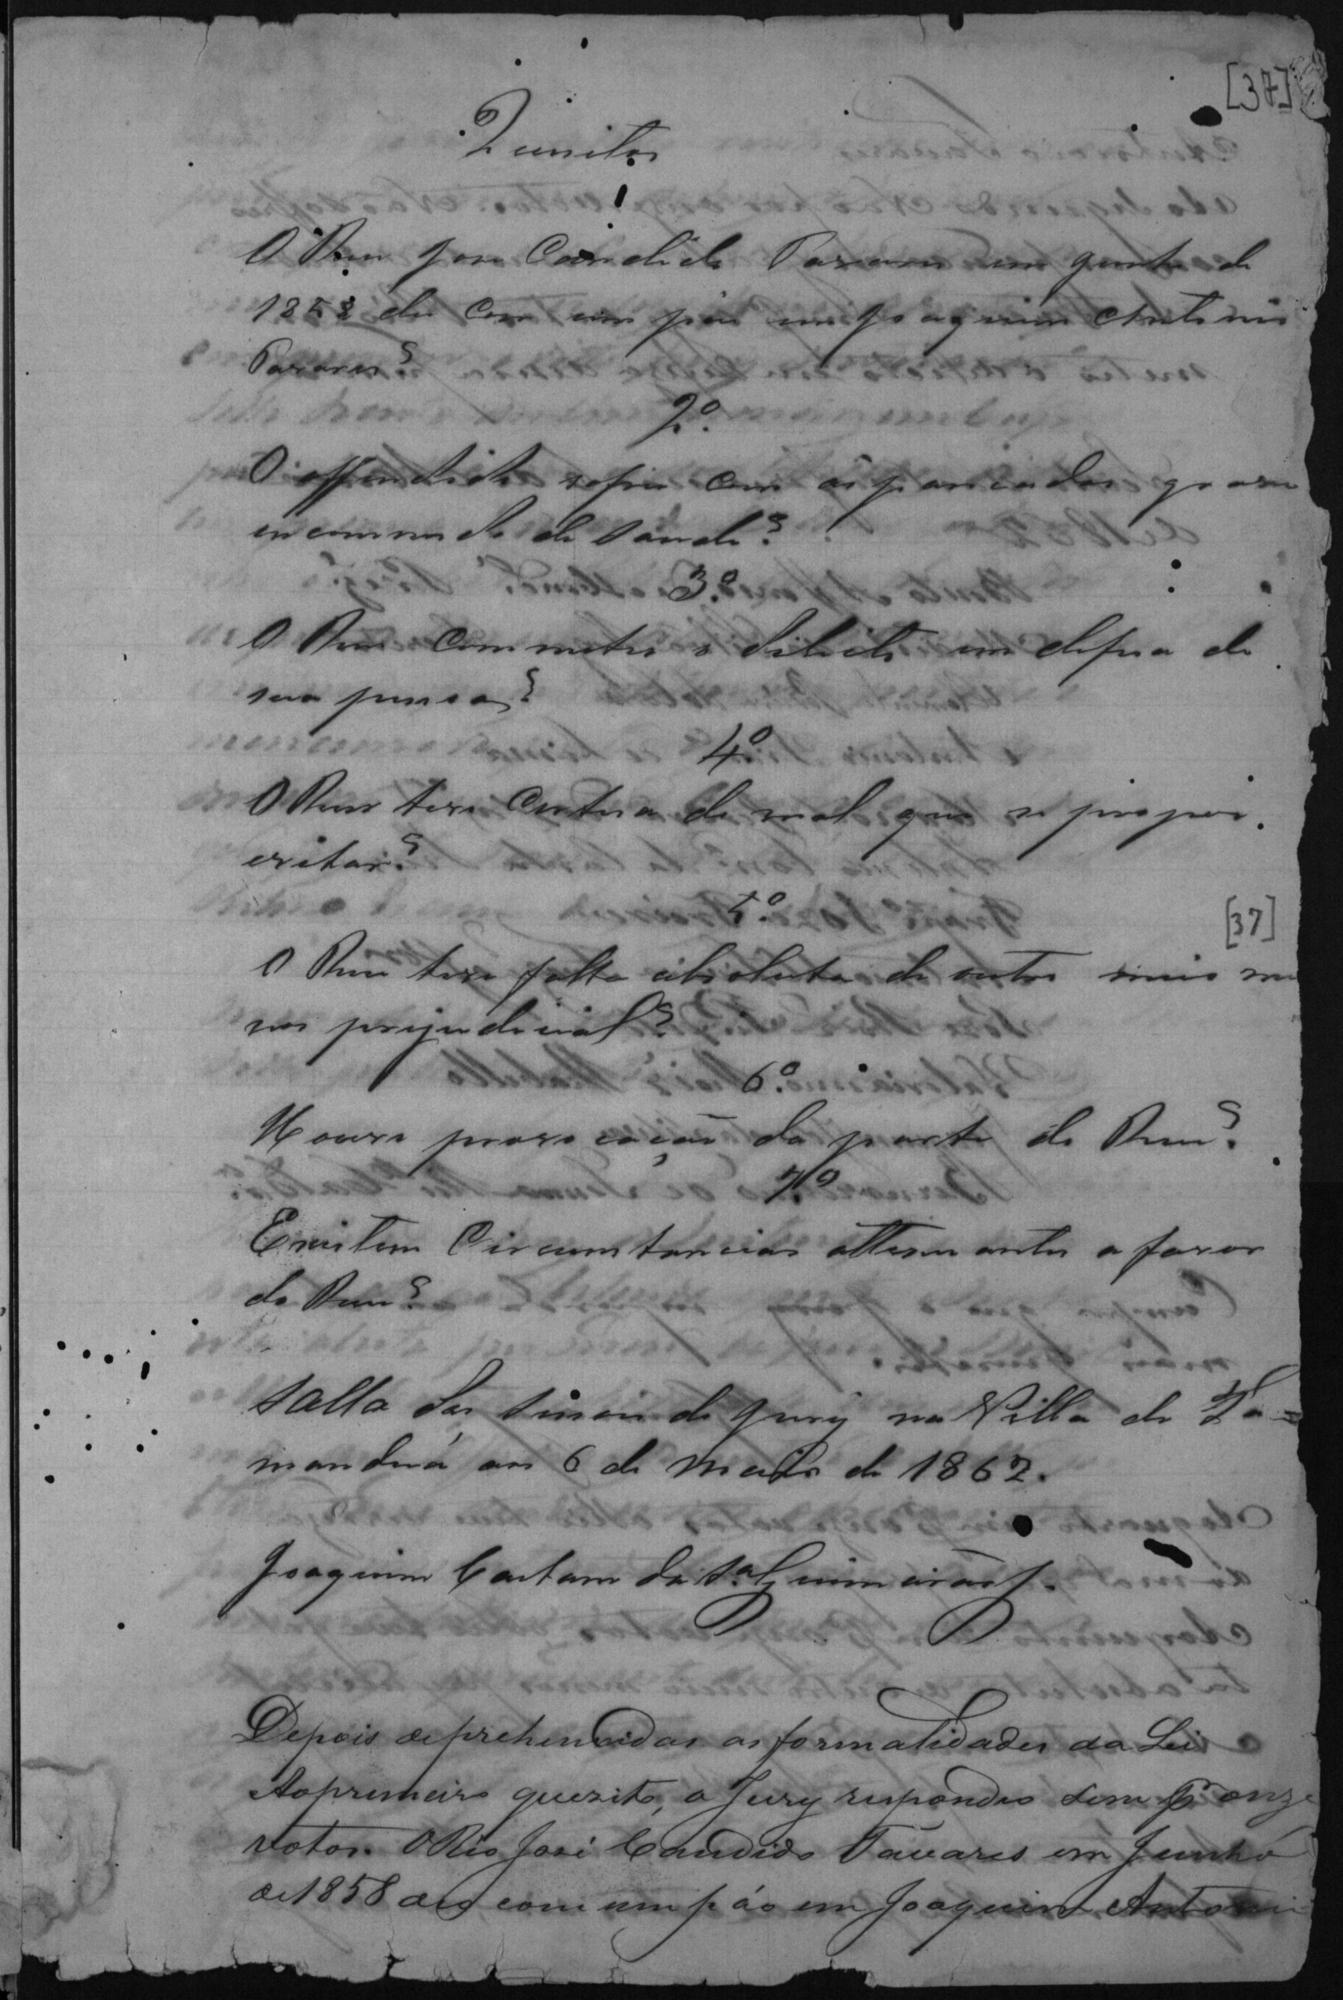 [37]
Quesitos
1
O Reu Jose Candido Tavares em Junho de
1858 deu com um páu em Joaquim Antonio
Tavares?
2º.
O offendido sofreu com as pancadas grave
encommodo de saude?
3º.
O Reu commetteu o delicto em defesa de
sua pessoa?
4º
O Reu teve certeza do mal que se propos
evitar?
5º.
O Reu teve falta absoluta de outro meio me
nos prejudicial?
[37]
6º.
Houve provocação da parte do Reu?
7º
Existem circumstancias attenuantes a favor
do Reu?
Salla das sessoes do Jury na Villa de Ta=
manduá aos 6 de Maio de 1862.
Joaquim Caetano da Sª Guimarães
Depois de prehenxidas as formalidades da Lei
Ao primeiro quezito, o Jury respondeo sim p onze
votos. O Reo José Candido Tavares em Junho
de 1858 deu com um páo em Joaquim Antonio